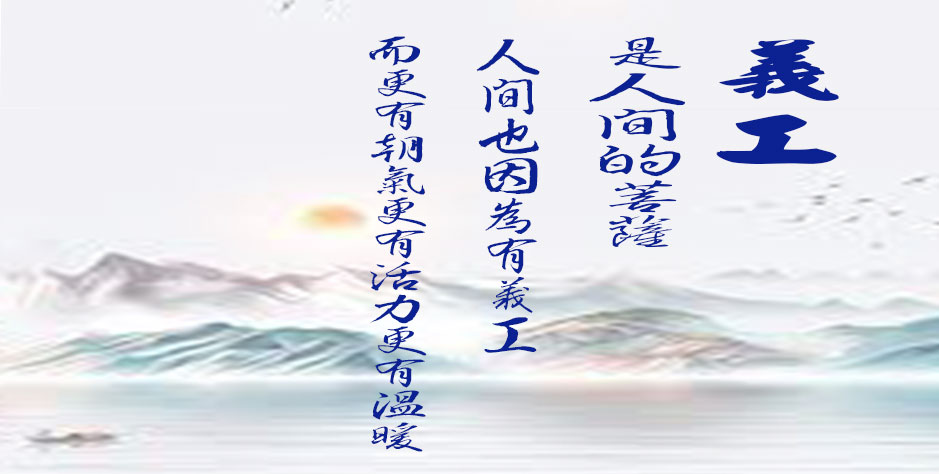 義工
是人间的菩薩
人间也因為有義工
而更有朝氣更有活力更有溫暖